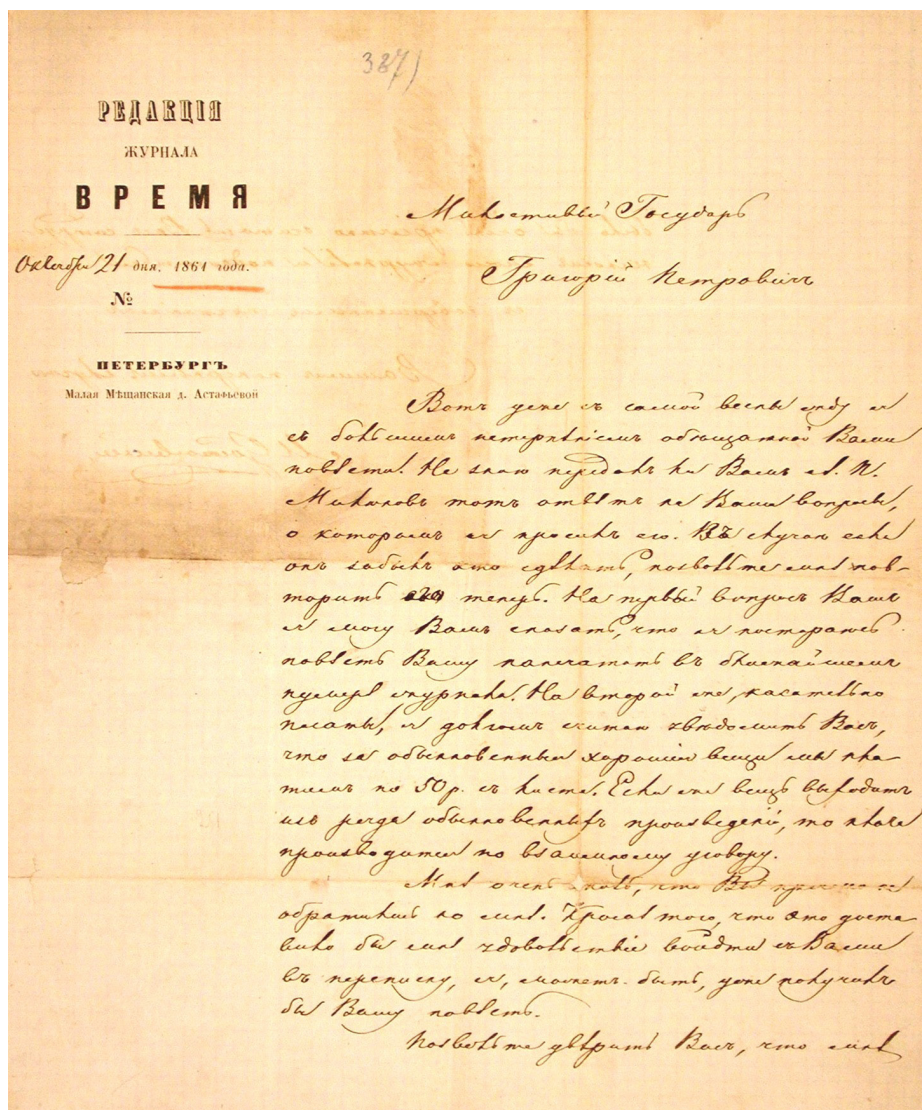 387)
РЕДАКЦІЯ
ЖУРНАЛА
ВРЕМЯ
Октября 21 дня, 1861 года.
№
ПЕТЕРБУРГЪ
Малая Мѣщанская д. Астафьевой
Милостивый Государь
Григорій Петровичъ
Вотъ уже съ самой весны жду я
съ большимъ нетерпѣніемъ обѣщанной Вами
повѣсти. Не знаю передалъ ли Вамъ А. П.
Милюковъ тотъ отвѣтъ на Ваши вопросы,
о которомъ я просилъ его. Въ случаѣ если
онъ забылъ это сдѣлать, позвольте мнѣ пов-
торить его теперь. На первый вопросъ Вашъ
я могу Вамъ сказать, что я постараюсь
повѣсть Вашу напечатать въ ближайшемъ
нумерѣ журнала. На второй же, касательно
платы, я долгомъ считаю увѣдомить Васъ,
что за обыкновенныя хорошія вещи мы пла-
тимъ по 50 р. съ листа. Если же вещь выходитъ
изъ ряда обыкновенныхъ произведеній, то плата
производится по взаимному уговору.
Мнѣ очень жаль, что Вы прямо не
обратились ко мнѣ. Кромѣ того, что это доста-
вило бы мнѣ удовольствіе войдти съ Вами
въ переписку, я, можетъ быть, уже получилъ
бы Вашу повѣсть.
Позвольте увѣрить Васъ, что мнѣ